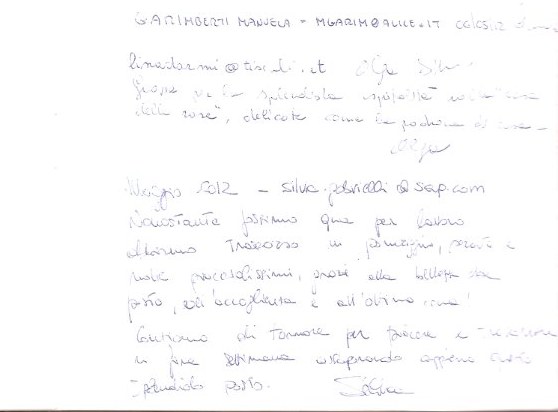 GARIMBERTI MANUELA - MGARIM@ALICE.IT
linadarmi@tiscali.it Olga
Grazie per la splendida ospitalità nella "casa
delle rose", delicata come la padrona di casa -
Olga
Maggio 2012 - silva.gabrielli@sap.com
Nonostante fossimo qua per lavoro
abbiamo trascorso un pomeriggio, serata e
notte piacevolissimi, grazie alla bellezza del
posto, all'accoglienza e all'ottima cena!
Contiamo di tornare per piacere e trascorrere
un fine settimana scoprendo appieno questo
splendido posto. Silva